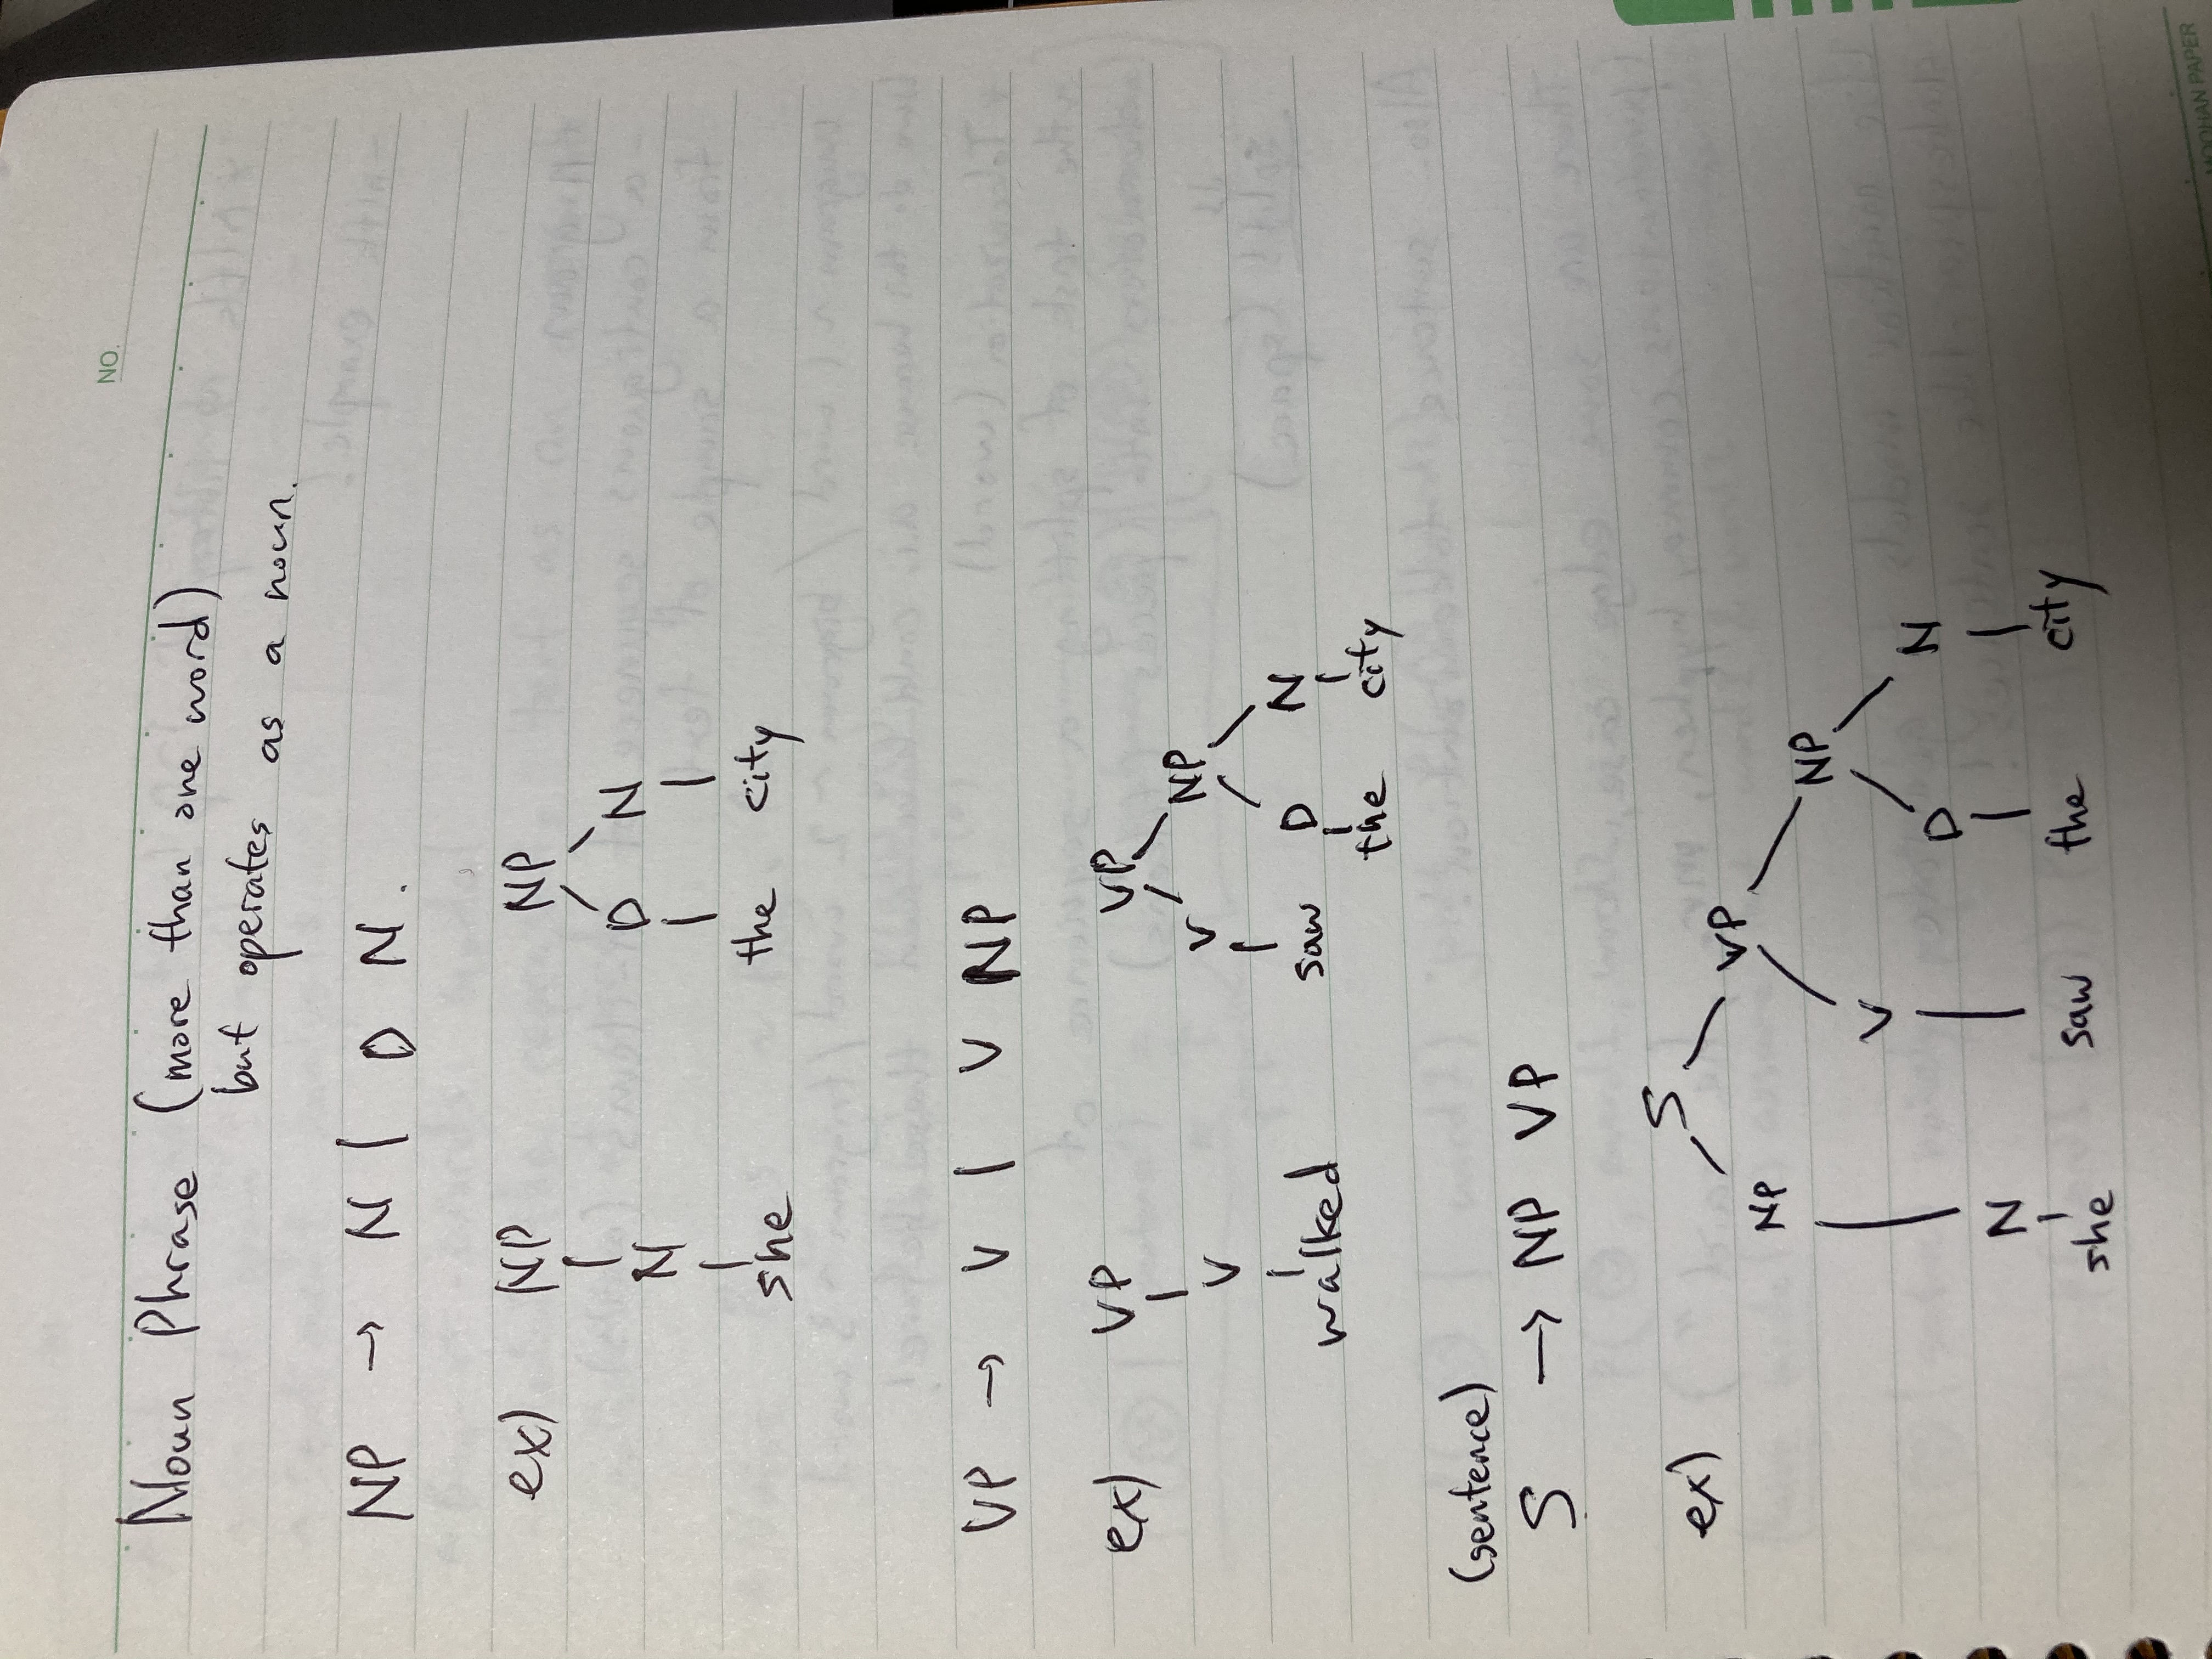 NO.
Noun Phrase (more than one word)
but operates as a noun.
NP → N | D N.
ex) NP NP
D N
N
she the city
VP → V | V NP
ex) VP VP
V NP
V
walked saw D N
the city
(sentence)
S → NP VP
ex) S
NP VP
NP
V
D N
N
she saw the city
MOOHAN PAPER